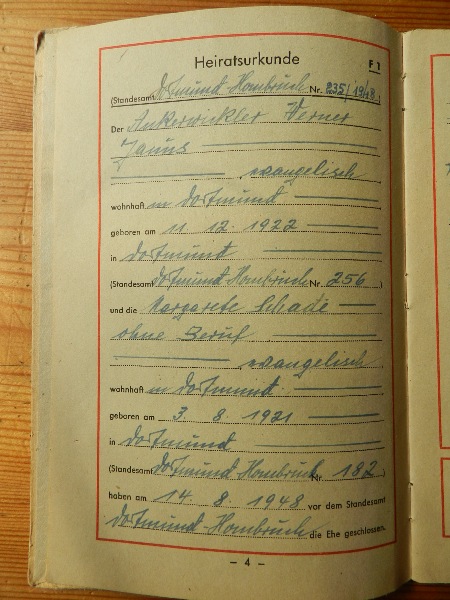 Heiratsurkunde
F 1
(Standesamt Dortmund-Hombruch Nr. 235/1948)
Der Ankerwickler Werner
evangelisch
wohnhaft in Dortmund
geboren am 11. 12. 1922
in Dortmund
(Standesamt Dortmund-Hombruch Nr. 256)
und die Margarete Schade
ohne Beruf
evangelisch
wohnhaft in Dortmund
geboren am 3. 8. 1921
in Dortmund
(Standesamt Dortmund-Hombruch Nr. 182)
haben am 14. 8. 1948 vor dem Standesamt
Dortmund-Hombruch die Ehe geschlossen.
– 4 –